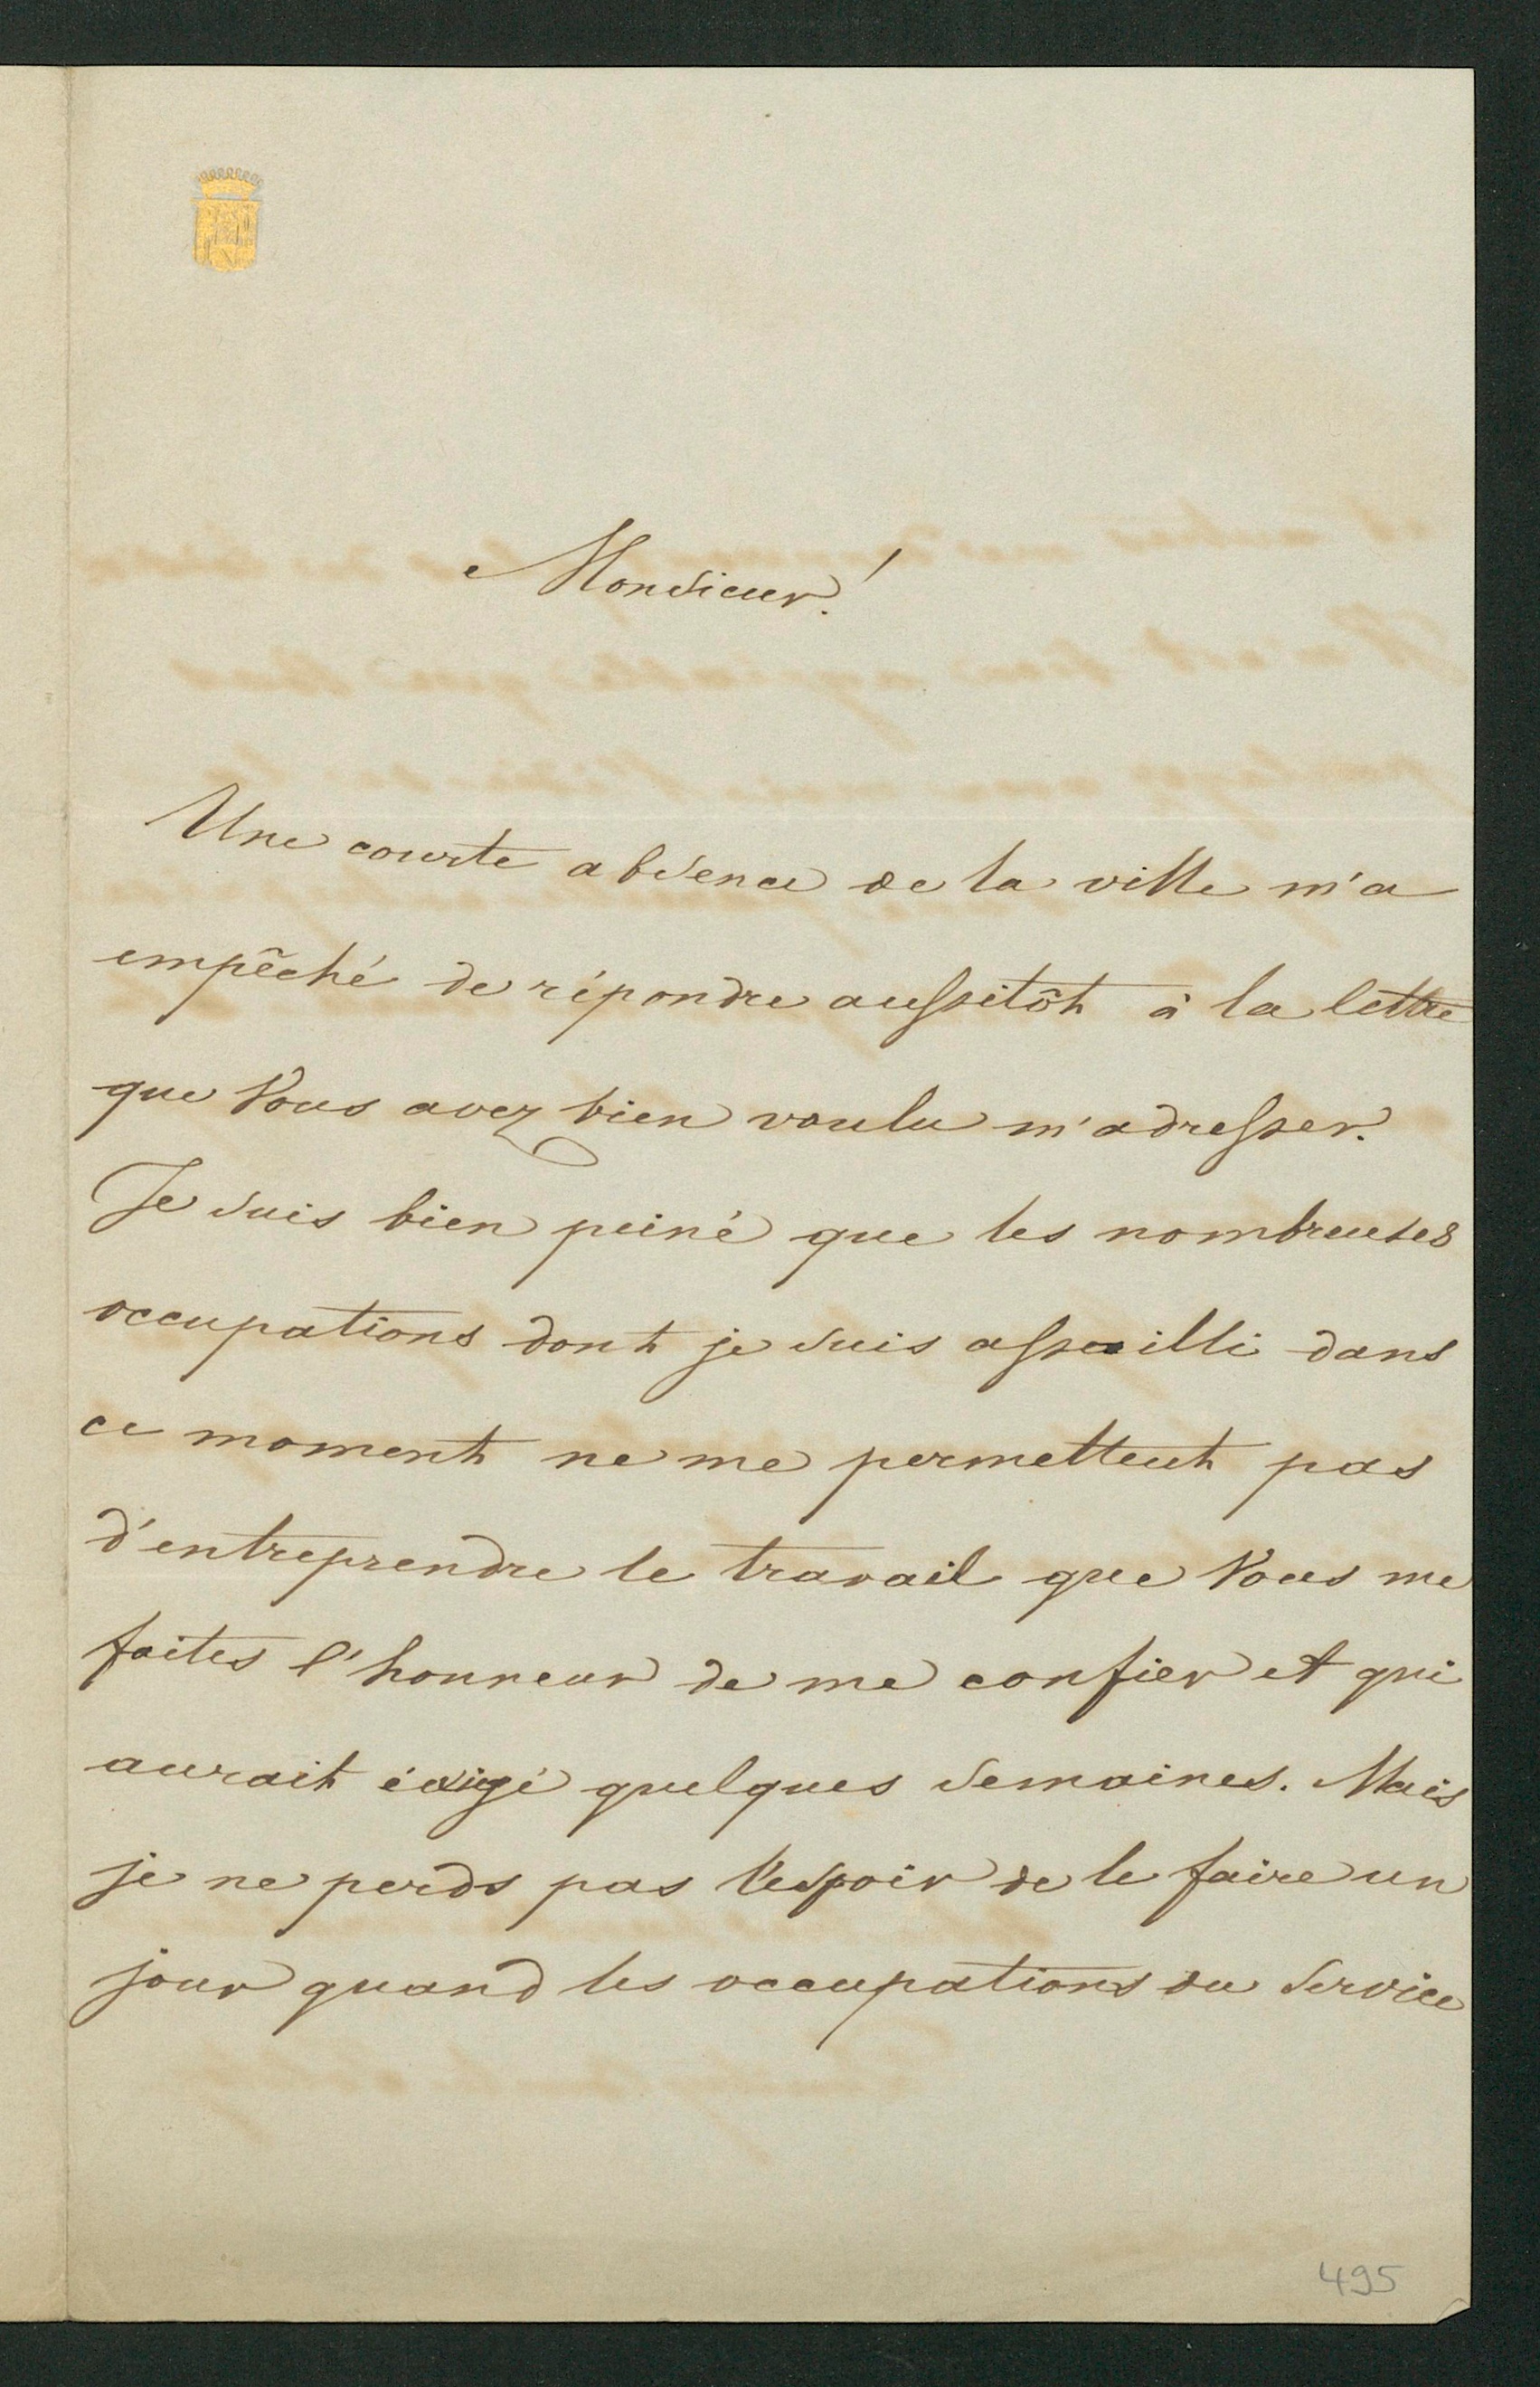 Monsieur!
Une courte absence de la ville m'a
empêché de répondre aussitôt à la lettre
que Vous avez bien voulu m'adresser.
Je suis bien peiné que les nombreuses
occupations dont je suis assailli dans
ce moment ne me permettent pas
d'entreprendre le travail que Vous me
faites l'honneur de me confier et qui
aurait éxigé quelques semaines. Mais
je ne perds pas l'espoir de le faire un
jour quand les occupations du service
495